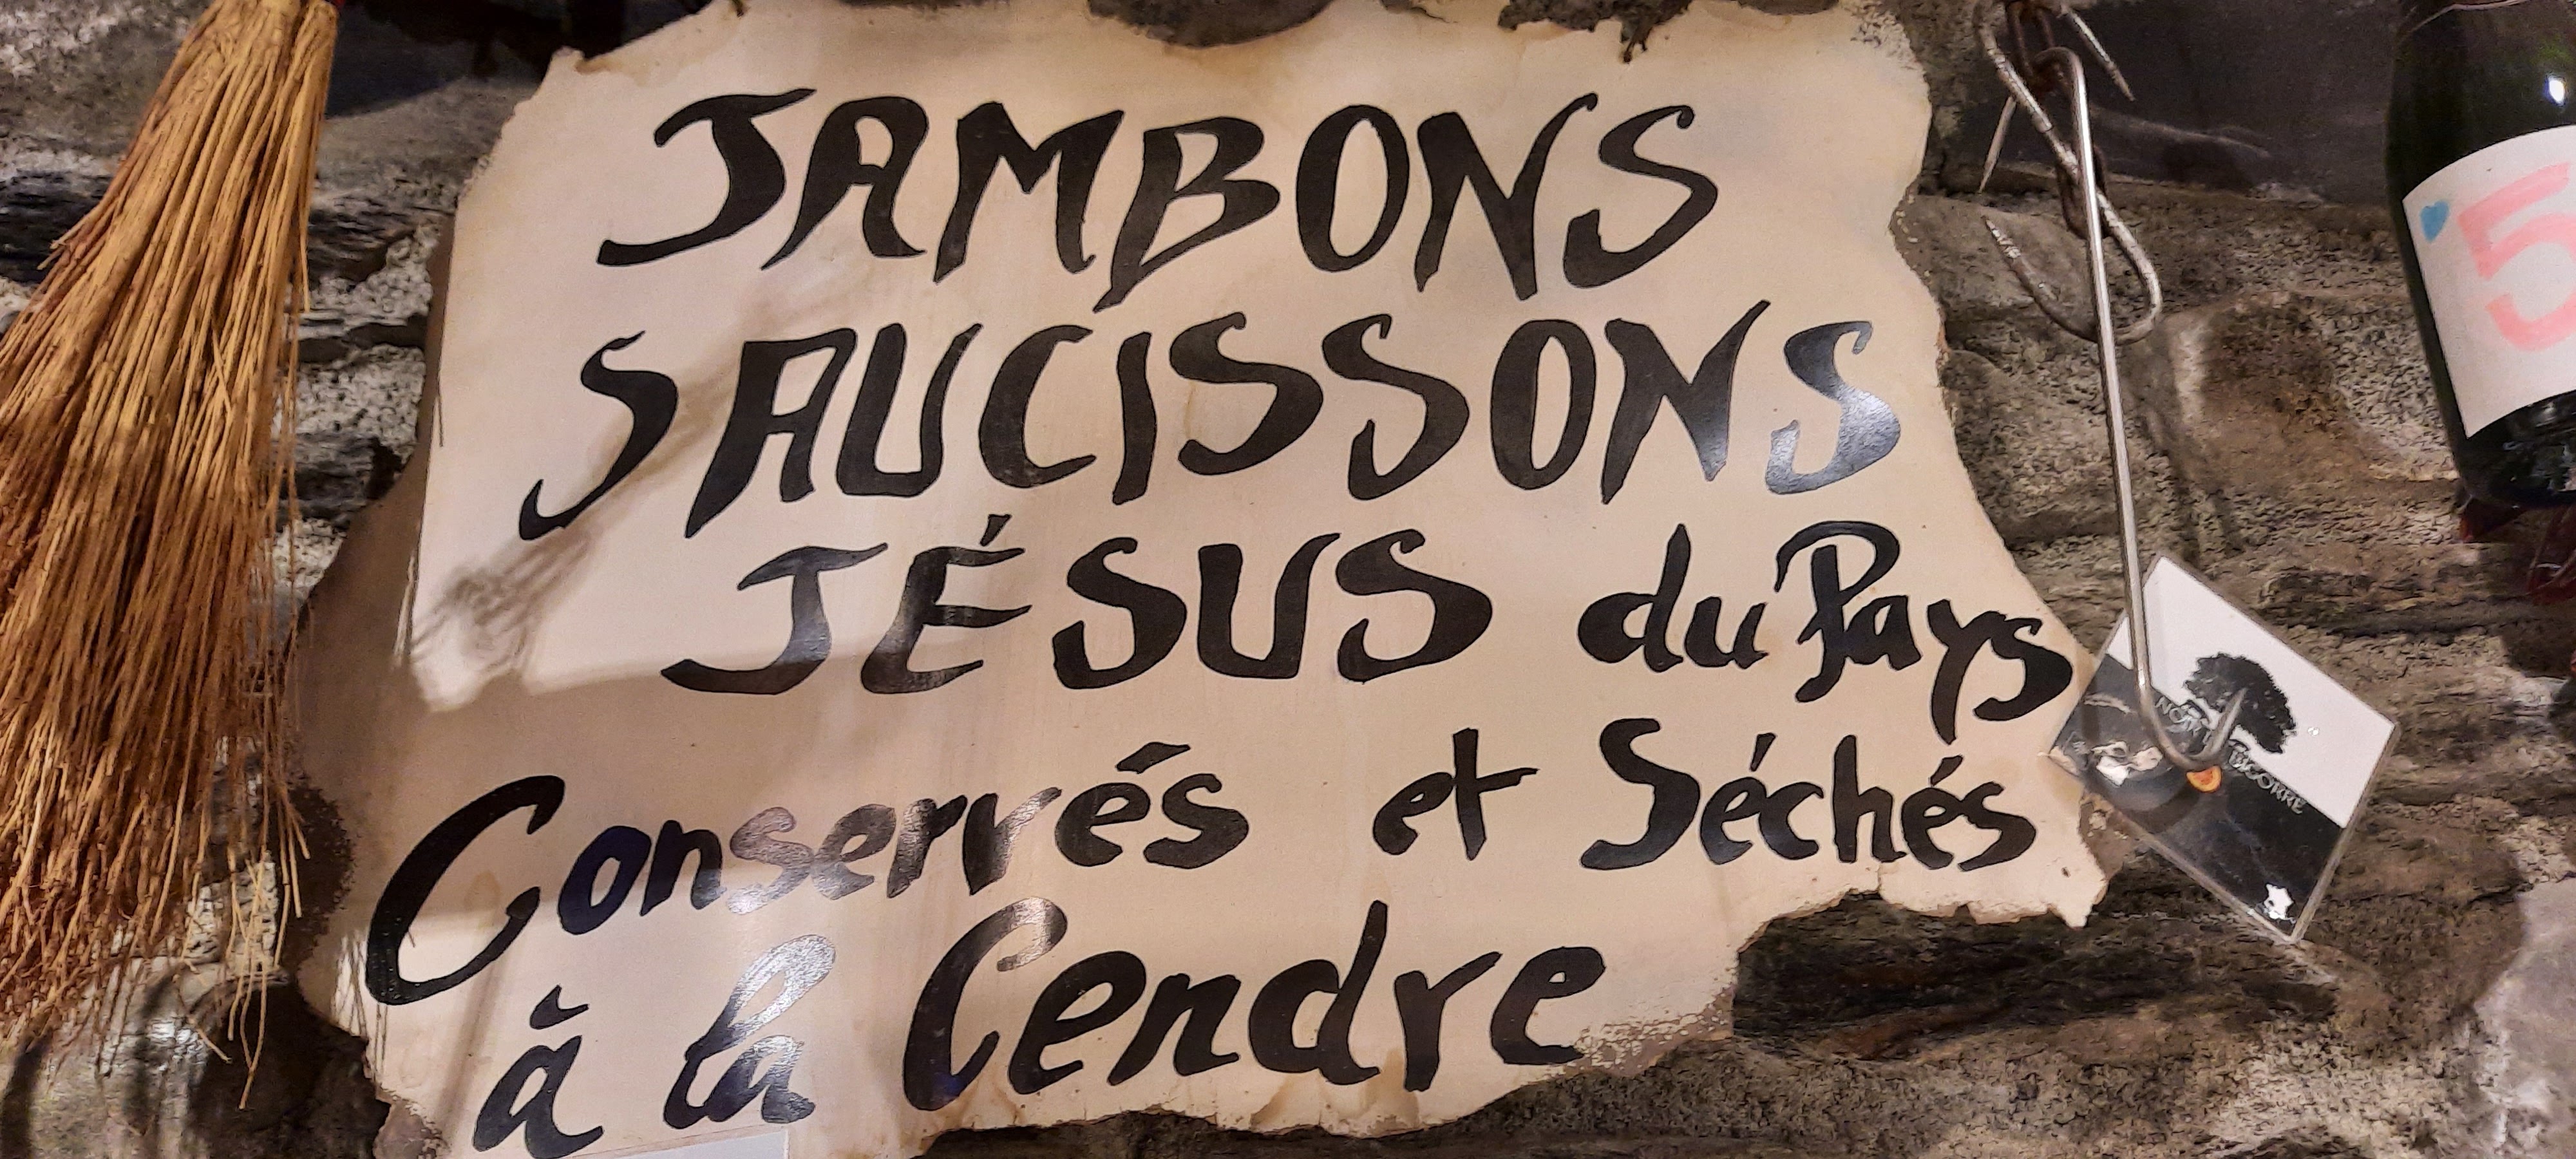 JAMBONS
SAUCISSONS
JÉSUS du Pays
Conservés et Séchés
à la Cendre
5
NOIR DE
BIGORRE